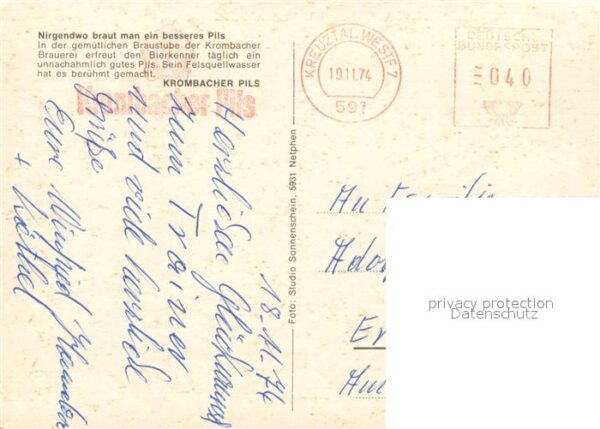 Nirgendwo braut man ein besseres Pils
In der gemütlichen Braustube der Krombacher
Brauerei erfreut den Bierkenner täglich ein
unnachahmlich gutes Pils. Sein Felsquellwasser
hat es berühmt gemacht.
KROMBACHER PILS
Krombacher Pils
18.11.74
Herzlichen Glückwunsch
zum Trainer
und viele herzliche
Grüße
Eure Winfried
+ Käthel
Foto: Studio Sonnenschein, 5931 Netphen
KREUZTAL, WESTF 7
19.11.74
591
DEUTSCHE
BUNDESPOST
040
An Familie
privacy protection
Datenschutz